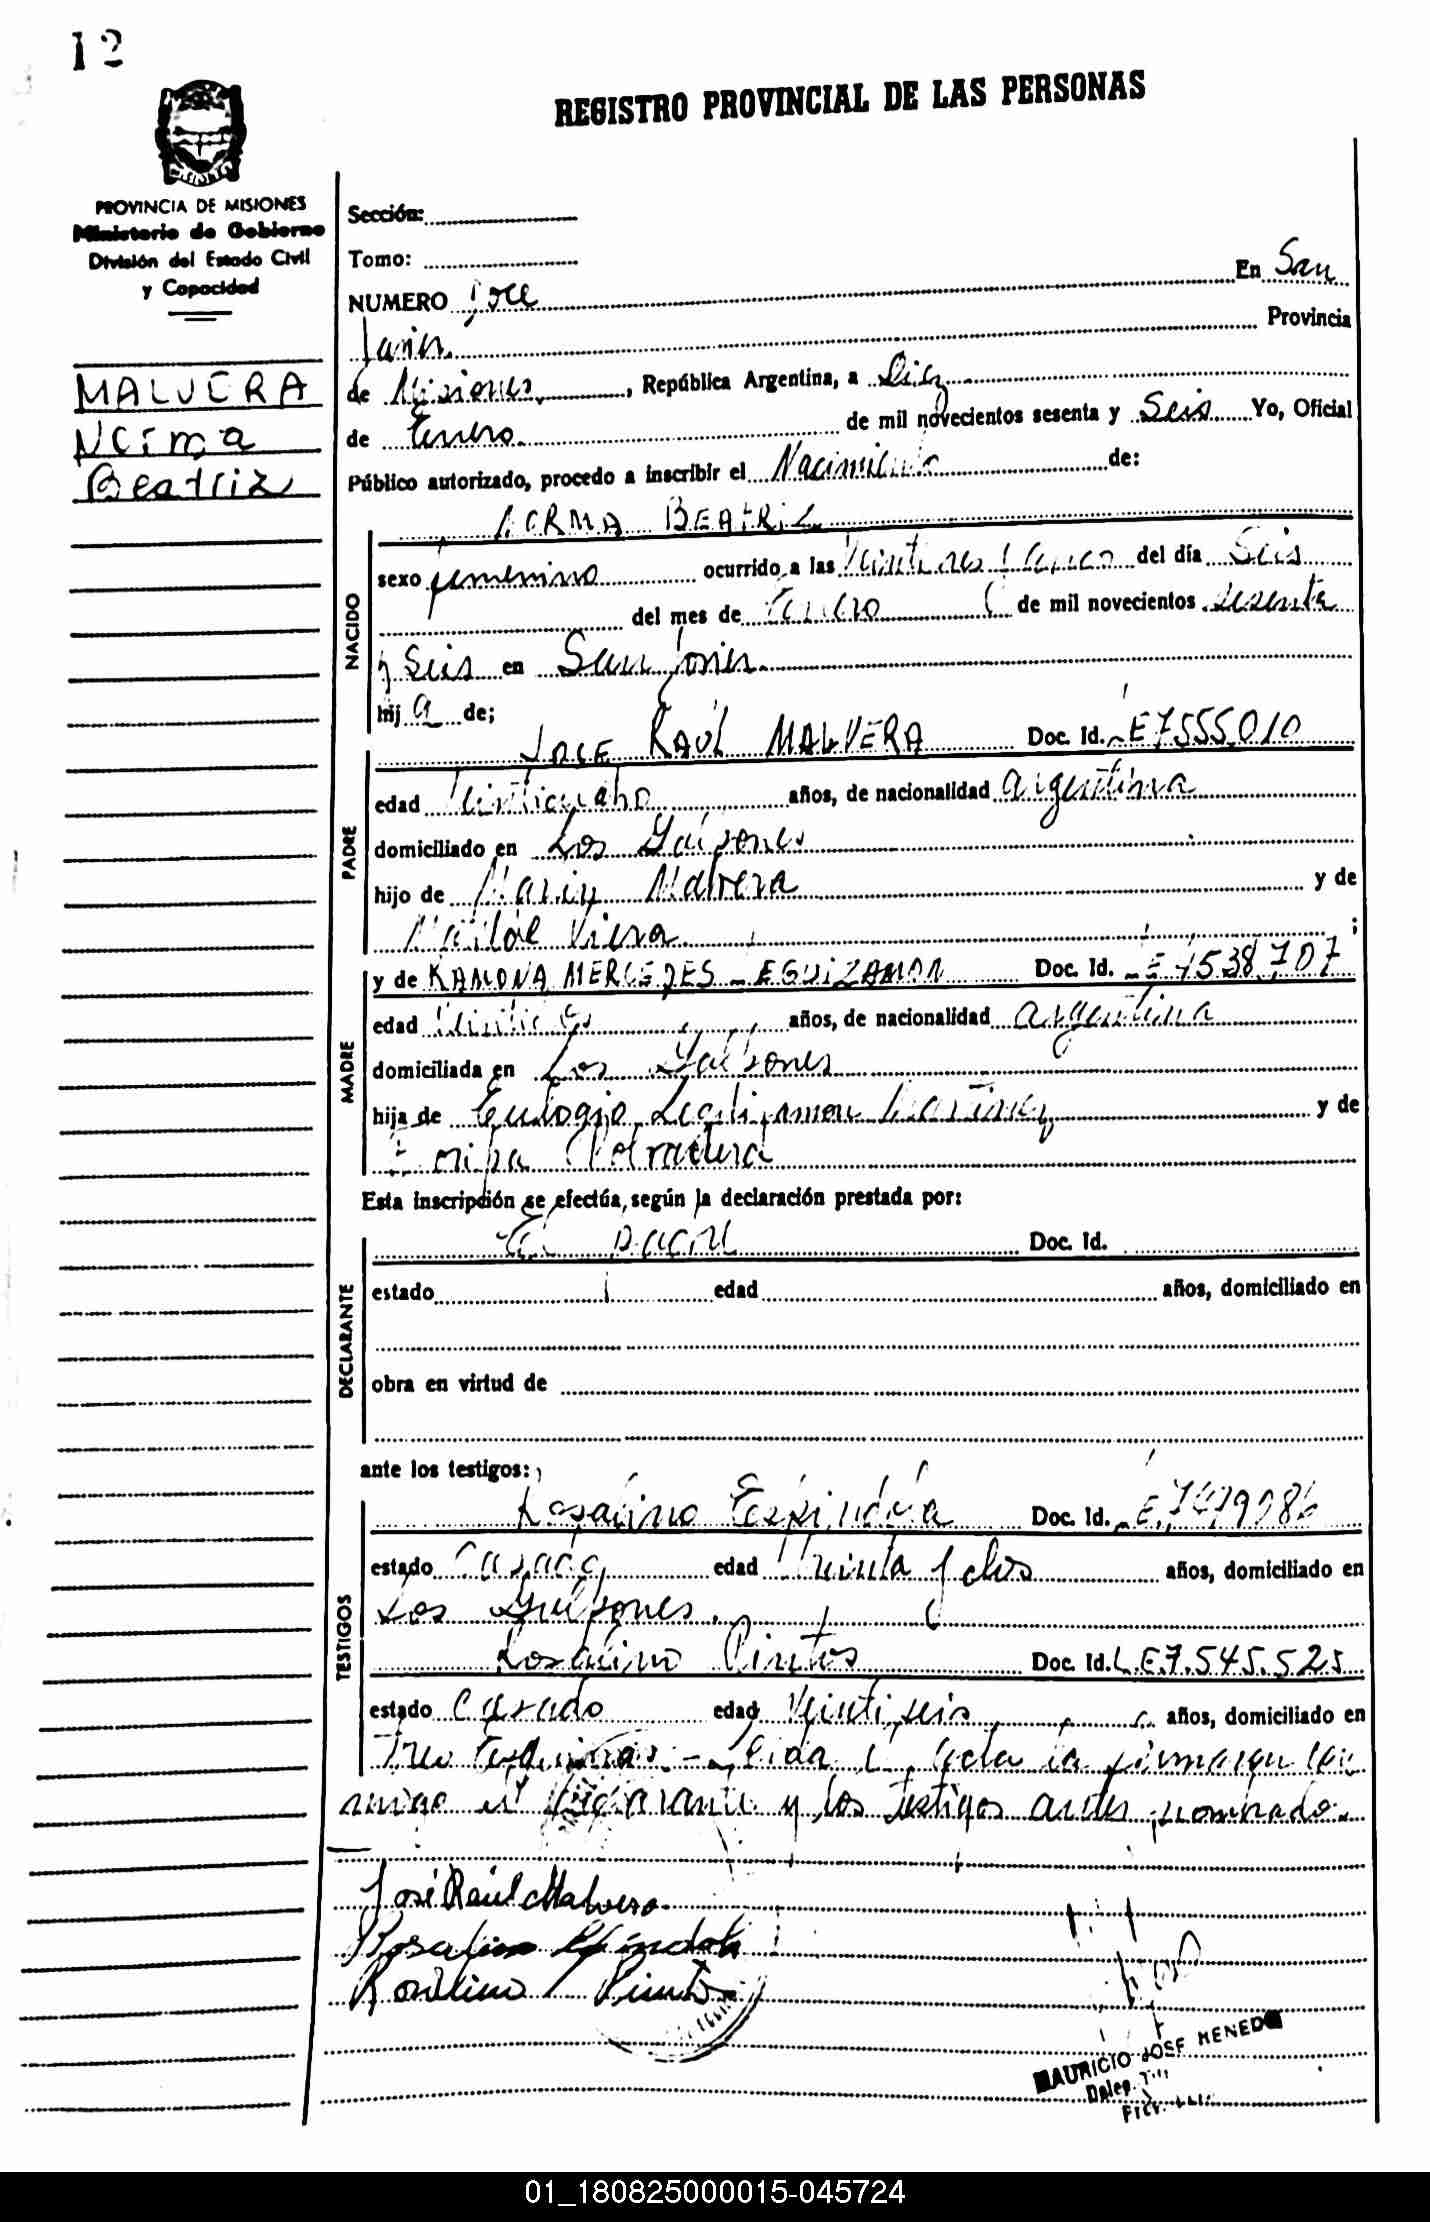 12
REGISTRO PROVINCIAL DE LAS PERSONAS
PROVINCIA DE MISIONES
Ministerio de Gobierno
División del Estado Civil
y Capacidad
MALVERA
Norma
Beatriz
Sección:
Tomo:
NUMERO Doce En San
Javier Provincia
de Misiones, República Argentina, a Diez
de Enero de mil novecientos sesenta y Seis Yo, Oficial
Público autorizado, procedo a inscribir el Nacimiento de:
NORMA BEATRIZ
NACIDO
sexo femenino ocurrido a las del día Seis
del mes de Enero de mil novecientos sesenta
y Seis en San Javier
hij a de;
PADRE
JOSE RAÚL MALVERA Doc. Id. E7555,010
edad años, de nacionalidad argentina
domiciliado en Los Galpones
hijo de Malvera y de
Matilde Viera ;
MADRE
y de RAMONA MERCEDES EGUIZAMON Doc. Id. E 7538,707
edad años, de nacionalidad argentina
domiciliada en Los Galpones
hija de Eulogio Martinez y de
Esta inscripción se efectúa, según la declaración prestada por:
DECLARANTE
El padre Doc. Id.
estado edad años, domiciliado en
obra en virtud de
ante los testigos:
TESTIGOS
Rosalino Espindola Doc. Id.
estado Casado edad treinta y dos años, domiciliado en
Los Galpones.
Rosalino Pintos Doc. Id. L.E.7.545.525
estado Casado edad Veintiseis años, domiciliado en
Tres Esquinas. - Leida el acta la firmaron con
migo el declarante y los testigos antes nombrado.
José Raúl Malvera
Rosalino Espindola
Rosalino Pinto
MAURICIO JOSE MENEDO
01_180825000015-045724